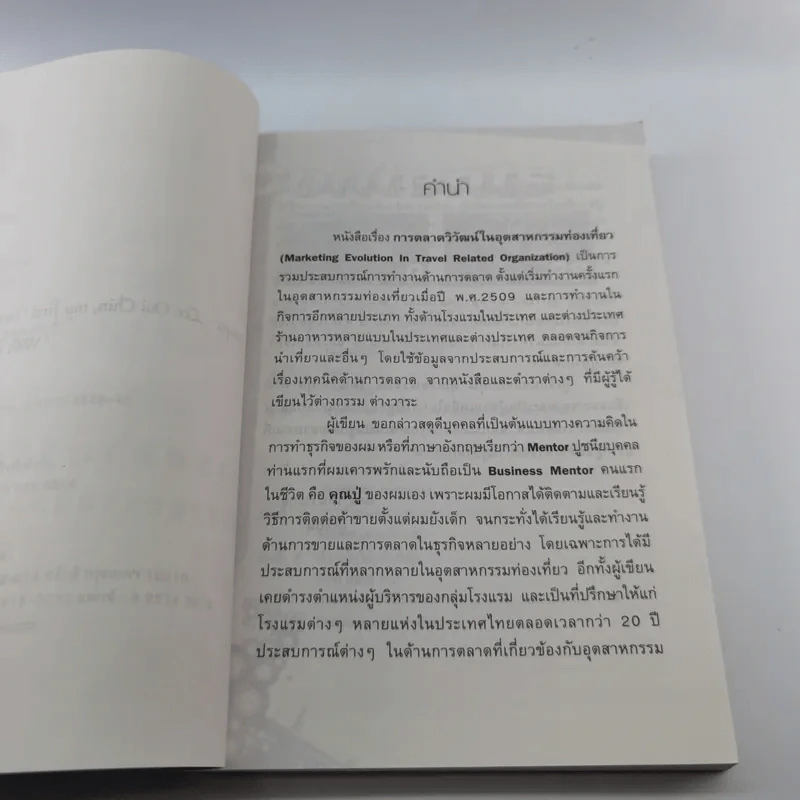 คำนำ
หนังสือเรื่อง การตลาดวิวัฒน์ในอุตสาหกรรมท่องเที่ยว
(Marketing Evolution In Travel Related Organization) เป็นการ
รวมประสบการณ์การทำงานด้านการตลาด ตั้งแต่เริ่มทำงานครั้งแรก
ในอุตสาหกรรมท่องเที่ยวเมื่อปี พ.ศ.2509 และการทำงานใน
กิจการอีกหลายประเภท ทั้งด้านโรงแรมในประเทศ และต่างประเทศ
ร้านอาหารหลายแบบในประเทศและต่างประเทศ ตลอดจนกิจการ
นำเที่ยวและอื่นๆ โดยใช้ข้อมูลจากประสบการณ์และการค้นคว้า
เรื่องเทคนิคด้านการตลาด จากหนังสือและตำราต่างๆ ที่มีผู้รู้ได้
เขียนไว้ต่างกรรม ต่างวาระ
ผู้เขียน ขอกล่าวสดุดีบุคคลที่เป็นต้นแบบทางความคิดใน
การทำธุรกิจของผม หรือที่ภาษาอังกฤษเรียกว่า Mentor ปูชนียบุคคล
ท่านแรกที่ผมเคารพรักและนับถือเป็น Business Mentor คนแรก
ในชีวิต คือ คุณปู่ ของผมเอง เพราะผมมีโอกาสได้ติดตามและเรียนรู้
วิธีการติดต่อค้าขายตั้งแต่ผมยังเด็ก จนกระทั่งได้เรียนรู้และทำงาน
ด้านการขายและการตลาดในธุรกิจหลายอย่าง โดยเฉพาะการได้มี
ประสบการณ์ที่หลากหลายในอุตสาหกรรมท่องเที่ยว อีกทั้งผู้เขียน
เคยดำรงตำแหน่งผู้บริหารของกลุ่มโรงแรม และเป็นที่ปรึกษาให้แก่
โรงแรมต่างๆ หลายแห่งในประเทศไทยตลอดเวลากว่า 20 ปี
ประสบการณ์ต่างๆ ในด้านการตลาดที่เกี่ยวข้องกับอุตสาหกรรม